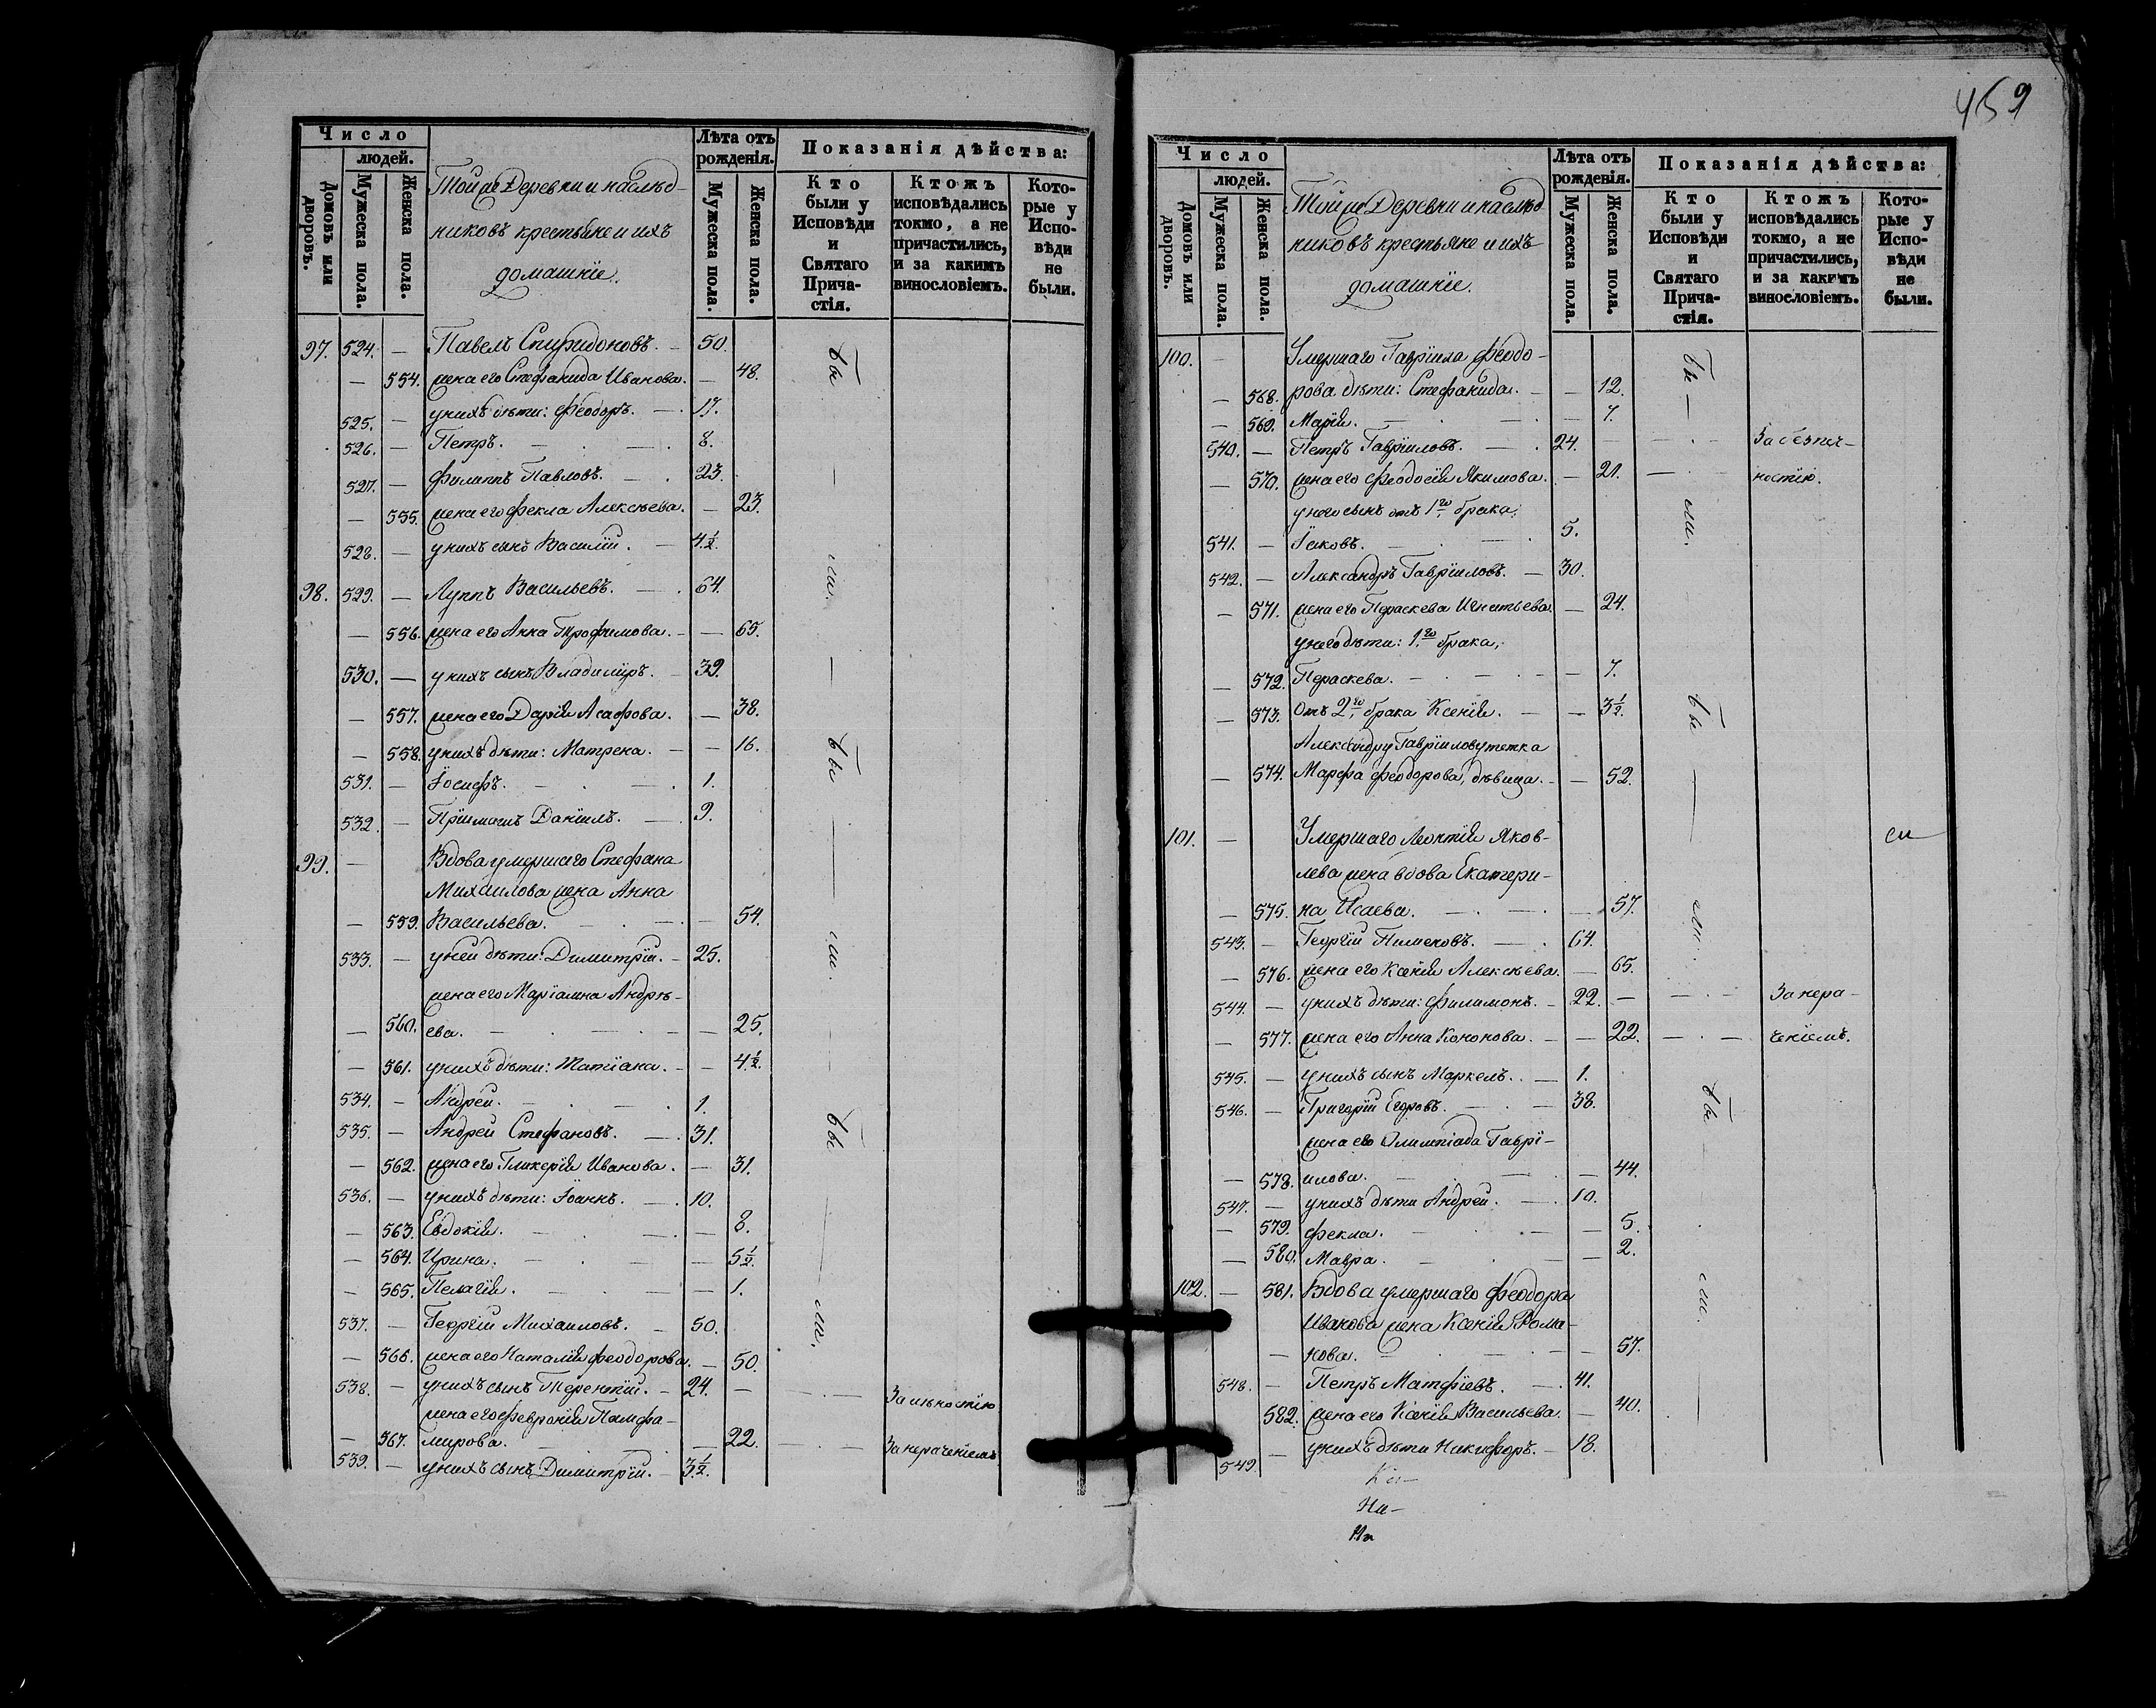 459
Число
людей.
Домовъ или дворовъ.
Мужеска пола.
Женска пола.
Тойже Деревни и наслѣд-
никовъ крестьяне и ихъ
домашніе.
Лѣта отъ рожденія.
Мужеска пола.
Женска пола.
Показанія дѣйства:
Кто были у Исповѣди и Святаго Прича-стія.
Ктожъ исповѣдались токмо, а не причастились, и за какимъ винословіемъ.
Кото-рые у Испо-вѣди не были.
97. 524. — Павелъ Спиридоновъ. — 50.
— 554. жена его Стефанида Иванова. — 48.
525. — у нихъ дѣти: Феодоръ. — 17.
526. — Петръ. — 8.
527. — Филиппъ Павловъ. — 23.
— 555. жена его Фекла Алексѣева. — 23.
528. — у нихъ сынъ Василій. — 4½.
98. 529. — Луппъ Васильевъ. — 64.
— 556. жена его Анна Трофимова. — 65.
530. — у нихъ сынъ Владимиръ. — 39.
— 557. жена его Дарія Асафова. — 38.
— 558. у нихъ дѣти: Матрена. — 16.
531. — Іосифъ. — 1.
532. — Пріимышъ Даніилъ. — 9.
99. — Вдова умершаго Стефана
Михаилова жена Анна
— 559. Васильева. — 54.
533. — у ней дѣти: Димитрій. — 25.
жена его Маріамна Андрѣ-
— 560. ева. — 25.
— 561. у нихъ дѣти: Татіана. — 4½.
534. — Андрей. — 1.
535. — Андрей Стефановъ. — 31.
— 562. жена его Гликерія Иванова. — 31.
536. — у нихъ дѣти: Іоаннъ. — 10.
— 563. Евдокія. — 8.
— 564. Ирина. — 5½.
— 565. Пелагія. — 1.
537. — Георгій Михаиловъ. — 50.
— 566. жена его Наталія Феодорова. — 50.
538. — у нихъ сынъ Терентій. — 24. — За лѣностію
жена его Февронія Памфа-
— 567. мирова. — 22. — За нераченіемъ
539. — у нихъ сынъ Димитрій. — 3½.
бы — ли.
бы — ли.
бы — ли.
Число
людей.
Домовъ или дворовъ.
Мужеска пола.
Женска пола.
Тойже Деревни и наслѣд
никовъ крестьяне и ихъ
домашніе.
Лѣта отъ рожденія.
Мужеска пола.
Женска пола.
Показанія дѣйства:
Кто были у Исповѣди и Святаго Прича-стія.
Ктожъ исповѣдались токмо, а не причастились, и за какимъ винословіемъ.
Кото-рые у Испо-вѣди не были.
100. — Умершаго Гавріила Феодо-
— 568. рова дѣти: Стефанида. — 12.
— 569. Марія. — 7.
540. — Петръ Гавріиловъ. — 24. — За безпеч-
— 570. жена его Феодосія Якимова. — 21. — ностію.
у него сынъ отъ 1го брака:
541. — Іаковъ. — 5.
542. — Александръ Гавріиловъ. — 30.
— 571. жена его Параскева Игнатьева. — 24.
у него дѣти: 1го брака,
— 572. Параскева. — 7.
— 573. Отъ 2го брака Ксенія. — 3½.
Александру Гавріилову тетка
— 574. Марфа Феодорова, дѣвица. — 52.
101. — Умершаго Леонтія Яков-
лева жена вдова Екатери-
— 575. на Исаева. — 57.
543. — Георгій Пименовъ. — 64.
— 576. жена его Ксенія Алексѣева. — 65.
544. — у нихъ дѣти: Филимонъ. — 22. — За нера-
— 577. жена его Анна Кононова. — 22. — ченіемъ.
545. — у нихъ сынъ Маркелъ. — 1.
546. — Григорій Егоровъ. — 38.
жена его Олимпіада Гаврі-
— 578. илова. — 44.
547. — у нихъ дѣти Андрей. — 10.
— 579. Фекла. — 5.
— 580. Мавра. — 2.
102. — 581. Вдова умершаго Феодора
Иванова жена Ксенія Рома-
— нова. — 57.
548. — Петръ Матфіевъ. — 41.
582. жена его Ксенія Васильева. — 40.
549. — у нихъ дѣти Никифоръ. — 18.
бы — ли.
бы — ли.
бы — ли.